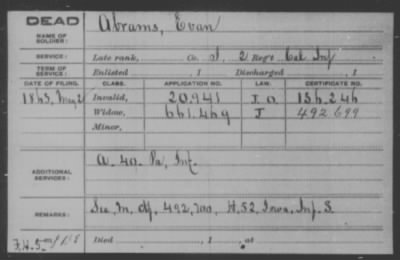 DEAD
NAME OF SOLDIER: Abrams, Evan
SERVICE: Late rank, Co. I, 2 Reg't Cal Inf
TERM OF SERVICE: Enlisted , 1 Discharged , 1
DATE OF FILING. CLASS. APPLICATION NO. LAW. CERTIFICATE NO.
1863, May 2 Invalid, 20.941 I O. 156.246
Widow, 661.469 J 492.699
Minor,
ADDITIONAL SERVICES: A. 40. Pa, Inf.
REMARKS: See M. of. 492,700, H. 52 Iowa, Inf. S.
Died , 1 , at